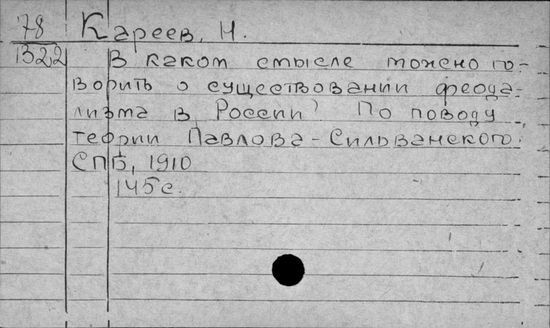 78 Кареев, Н.
1322 В каком смысле можно го-
ворить о существовании феода-
лизма в России? По поводу
теории Павлова-Сильванского.
СПБ, 1910
145 с.